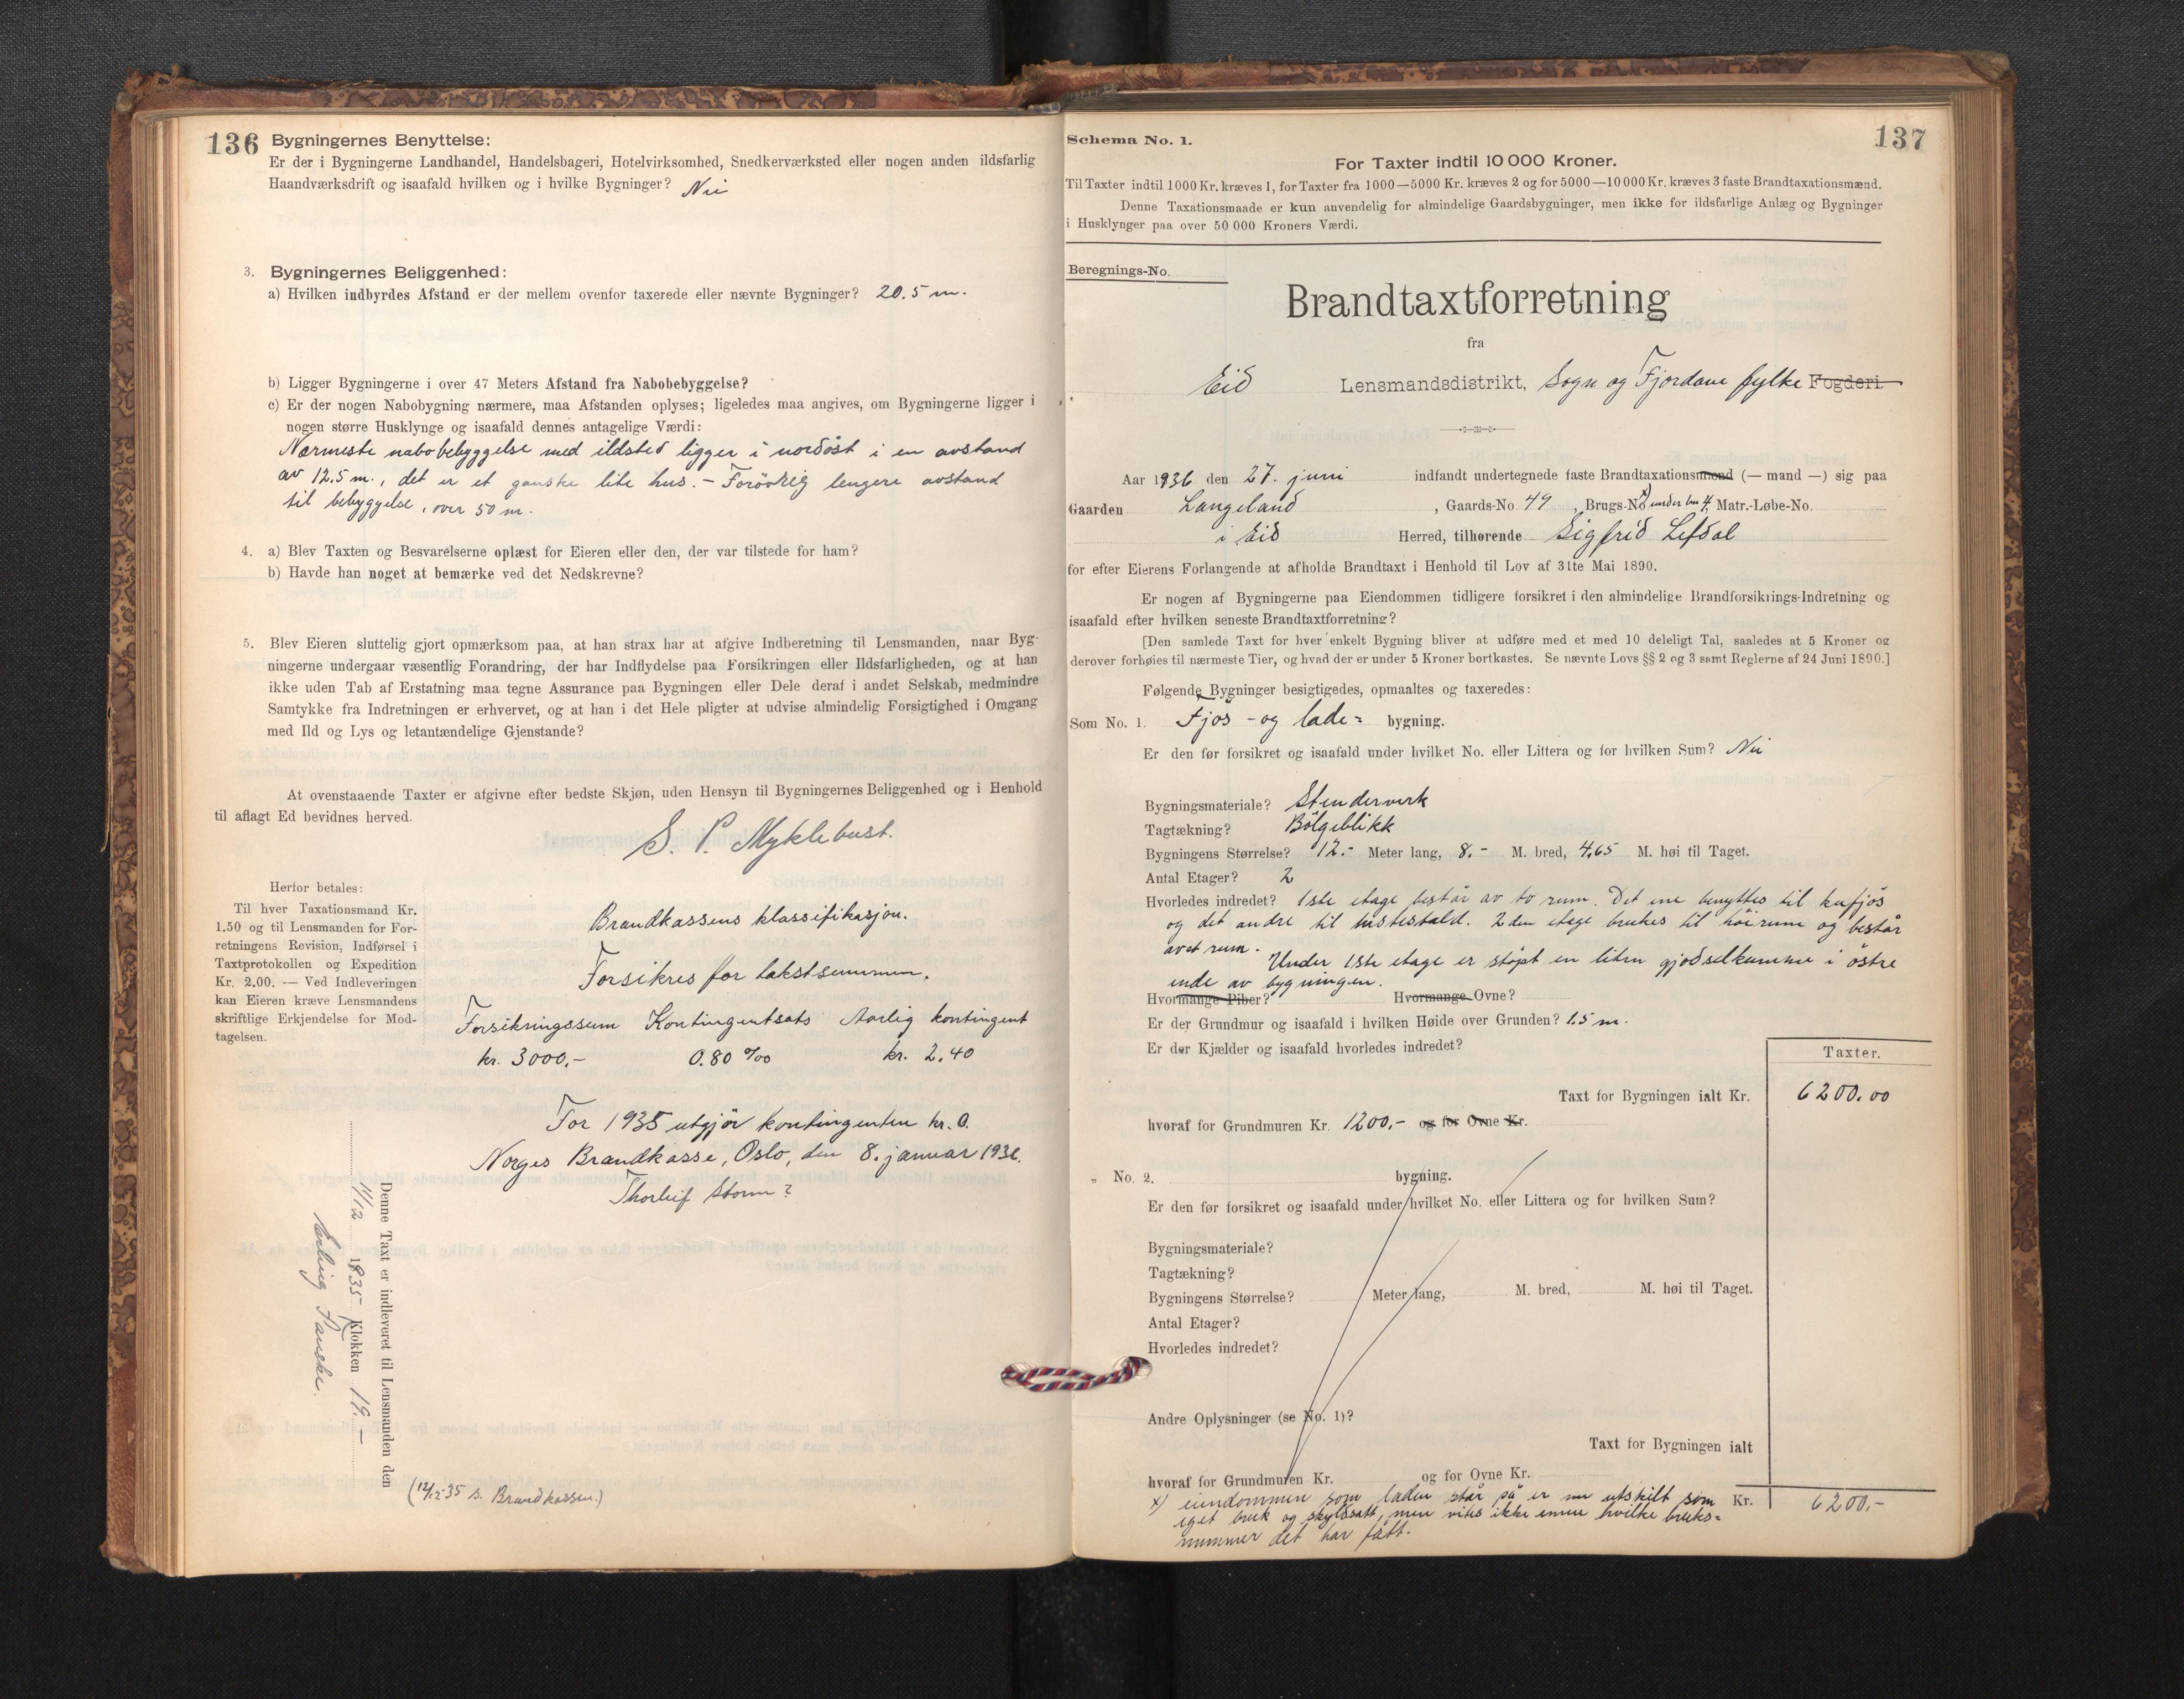 136 Bygningernes Benyttelse:
Er der i Bygningerne Landhandel, Handelsbageri, Hotelvirksomhed, Snedkerværksted eller nogen anden ildsfarlig
Haandværksdrift og isaafald hvilken og i hvilke Bygninger? Nei
3. Bygningernes Beliggenhed:
a) Hvilken indbyrdes Afstand er der mellem ovenfor taxerede eller nævnte Bygninger? 20.5 m.
b) Ligger Bygningerne i over 47 Meters Afstand fra Nabobebyggelse?
c) Er der nogen Nabobygning nærmere, maa Afstanden oplyses; ligeledes maa angives, om Bygningerne ligger i
nogen større Husklynge og isaafald dennes antagelige Værdi:
Nærmeste nabobebyggelse med ildsted ligger i nordöst i en avstand
av 12.5 m., det er et ganske lite hus. - Forövrig lengere avstand
til bebyggelse, over 50 m.
4. a) Blev Taxten og Besvarelserne oplæst for Eieren eller den, der var tilstede for ham?
b) Havde han noget at bemærke ved det Nedskrevne?
5. Blev Eieren sluttelig gjort opmærksom paa, at han strax har at afgive Indberetning til Lensmanden, naar Byg-
ningerne undergaar væsentlig Forandring, der har Indflydelse paa Forsikringen eller Ildsfarligheden, og at han
ikke uden Tab af Erstatning maa tegne Assurance paa Bygningen eller Dele deraf i andet Selskab, medmindre
Samtykke fra Indretningen er erhvervet, og at han i det Hele pligter at udvise almindelig Forsigtighed i Omgang
med Ild og Lys og letantændelige Gjenstande?
At ovenstaaende Taxter er afgivne efter bedste Skjøn, uden Hensyn til Bygningernes Beliggenhed og i Henhold
til aflagt Ed bevidnes herved.
S. P. Myklebust.
Herfor betales:
Til hver Taxationsmand Kr.
1.50 og til Lensmanden for For-
retningens Revision, Indførsel i
Taxtprotokollen og Expedition
Kr. 2.00. — Ved Indleveringen
kan Eieren kræve Lensmandens
skriftlige Erkjendelse for Mod-
tagelsen.
Brandkassens klassifikasjon.
Forsikres for takstsummen.
Forsikringssum Kontingentsats Aarlig kontingent
kr. 3000.- 0.80 ‰ kr. 2.40
For 1935 utgjör kontingenten kr. 0.
Norges Brandkasse, Oslo, den 8. januar 1936.
Thorleif Storm?
Denne Taxt er indleveret til Lensmanden den
11/12 1935 Klokken 19.-
Erling
(12/12-35 s. Brandkassen.)
137
Schema No. 1.
For Taxter indtil 10 000 Kroner.
Til Taxter indtil 1000 Kr. kræves 1, for Taxter fra 1000—5000 Kr. kræves 2 og for 5000—10 000 Kr. kræves 3 faste Brandtaxationsmænd.
Denne Taxationsmaade er kun anvendelig for almindelige Gaardsbygninger, men ikke for ildsfarlige Anlæg og Bygninger
i Husklynger paa over 50 000 Kroners Værdi.
Beregnings-No.
Brandtaxtforretning
fra
Eid Lensmandsdistrikt, Sogn og Fjordane fylke Fogderi.
Aar 1936 den 27. juni indfandt undertegnede faste Brandtaxationsmænd (— mand —) sig paa
Gaarden Langeland, Gaards-No. 49, Brugs-No. x) under bnr 4, Matr.-Løbe-No.
i Eid Herred, tilhørende Sigfrid Lefdal
for efter Eierens Forlangende at afholde Brandtaxt i Henhold til Lov af 31te Mai 1890.
Er nogen af Bygningerne paa Eiendommen tidligere forsikret i den almindelige Brandforsikrings-Indretning og
isaafald efter hvilken seneste Brandtaxtforretning?
[Den samlede Taxt for hver enkelt Bygning bliver at udføre med et med 10 deleligt Tal, saaledes at 5 Kroner og
derover forhøies til nærmeste Tier, og hvad der er under 5 Kroner bortkastes. Se nævnte Lovs §§ 2 og 3 samt Reglerne af 24 Juni 1890.]
Følgende Bygninger besigtigedes, opmaaltes og taxeredes:
Som No. 1. Fjos - og lade- bygning.
Er den før forsikret og isaafald under hvilket No. eller Littera og for hvilken Sum? Nei
Bygningsmateriale? Stenderverk
Tagtækning? Bölgeblikk
Bygningens Størrelse? 12.- Meter lang, 8.- M. bred, 4.65 M. høi til Taget.
Antal Etager? 2
Hvorledes indredet? 1ste etage består av to rum. Det ene benyttes til kufjös
og det andre til hestestald. 2den etage brukes til höirum og består
av et rum. Under 1ste etage er stöpt en liten gjödselkumme i östre
ende av bygningen.
Hvormange Piber? Hvormange Ovne?
Er der Grundmur og isaafald i hvilken Høide over Grunden? 1.5 m.
Er der Kjælder og isaafald hvorledes indredet?
Taxter.
Taxt for Bygningen ialt Kr. 6200.00
hvoraf for Grundmuren Kr. 1200.- og for Ovne Kr.
„ No. 2. bygning.
Er den før forsikret og isaafald under hvilket No. eller Littera og for hvilken Sum?
Bygningsmateriale?
Tagtækning?
Bygningens Størrelse? Meter lang, M. bred, M. høi til Taget.
Antal Etager?
Hvorledes indredet?
Andre Oplysninger (se No. 1)?
Taxt for Bygningen ialt
hvoraf for Grundmuren Kr. og for Ovne Kr.
Kr. 6200.-
x) eiendommen som laden står på er nu utskilt som
eget bruk og skyldsatt, men vites ikke ennu hvilke bruks-
nummer det har fått.